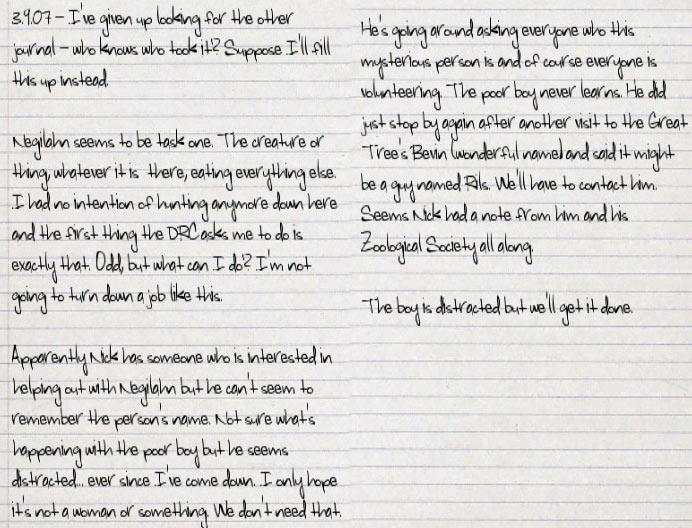 3.9.07 - I've given up looking for the other
journal - who knows who took it? Suppose I'll fill
this up instead.
Negilahn seems to be task one. The creature or
thing, whatever it is there, eating everything else.
I had no intention of hunting anymore down here
and the first thing the DRC asks me to do is
exactly that. Odd, but what can I do? I'm not
going to turn down a job like this.
Apparently Nick has someone who is interested in
helping out with Negilahn but he can't seem to
remember the person's name. Not sure what's
happening with the poor boy but he seems
distracted... ever since I've come down. I only hope
it's not a woman or something. We don't need that.
He's going around asking everyone who this
mysterious person is and of course everyone is
volunteering. The poor boy never learns. He did
just stop by again after another visit to the Great
Tree's Bevin (wonderful name) and said it might
be a guy named Rils. We'll have to contact him.
Seems Nick had a note from him and his
Zoological Society all along.
The boy is distracted but we'll get it done.